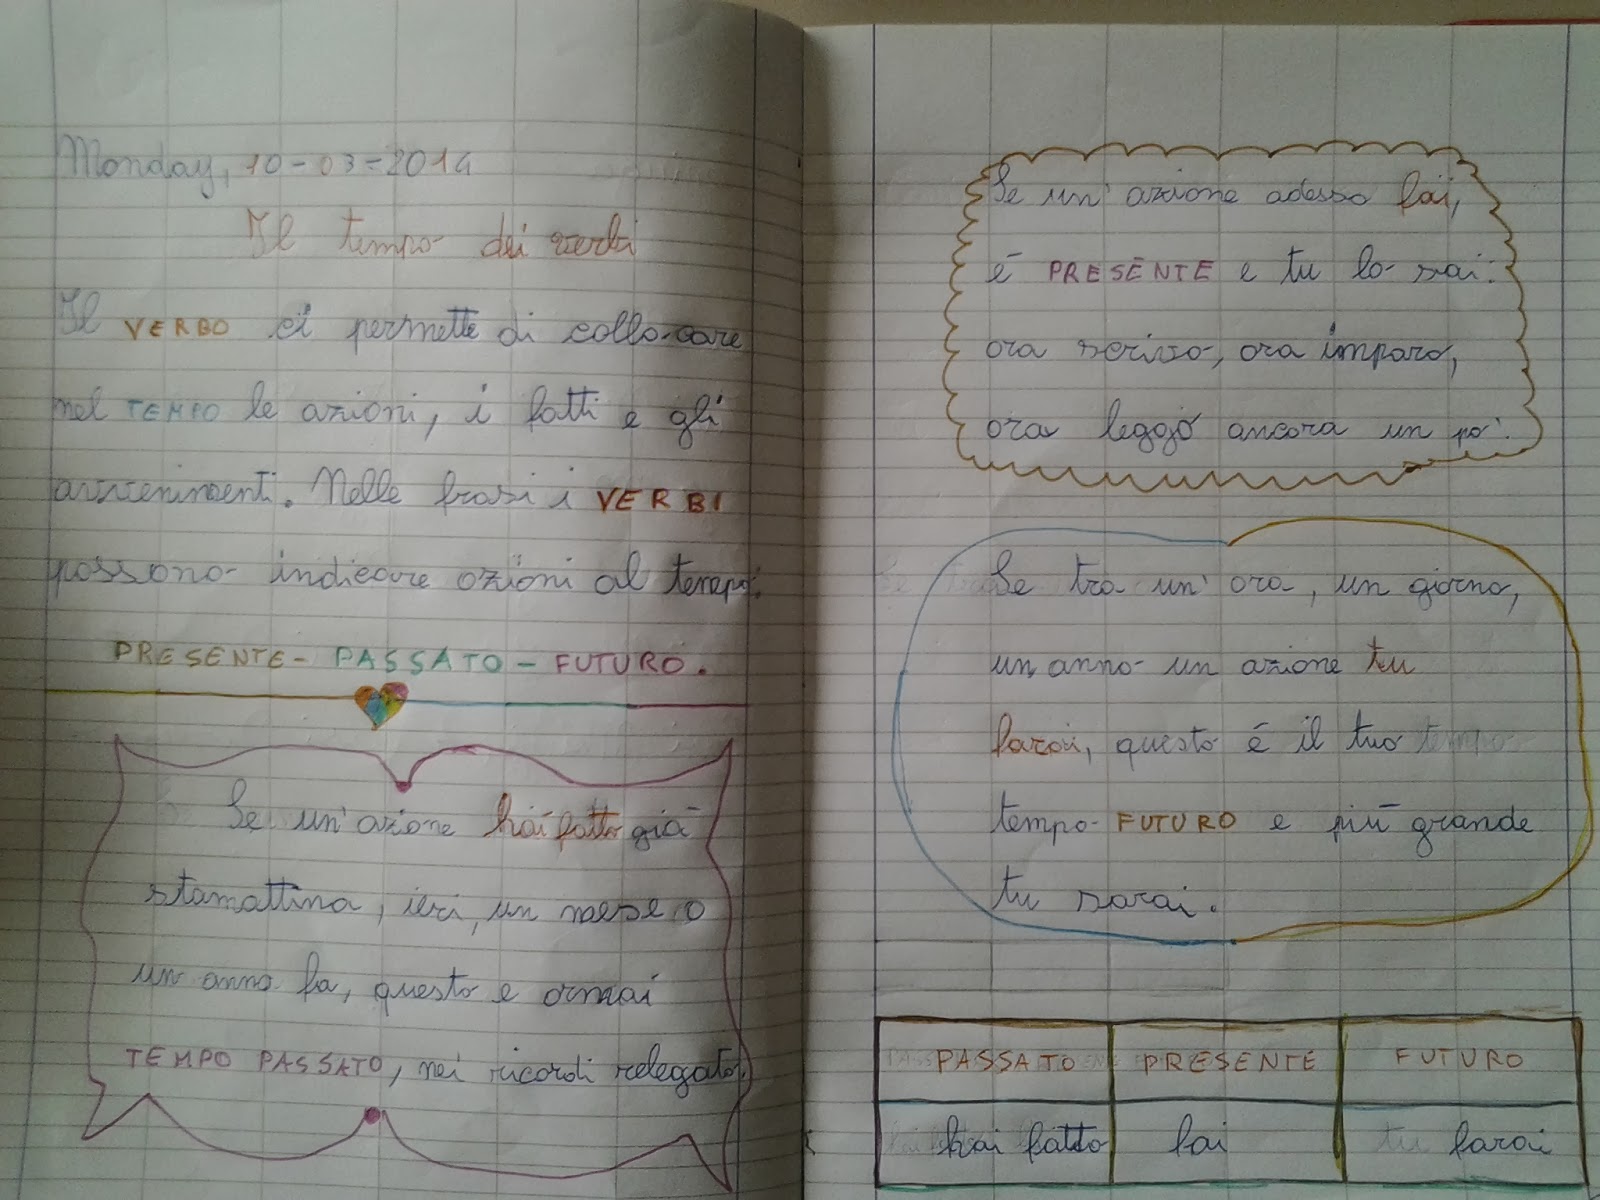 Monday, 10-03-2014
Il tempo dei verbi
Il VERBO ci permette di collocare
nel TEMPO le azioni, i fatti e gli
avvenimenti. Nelle frasi i VERBI
possono indicare azioni al tempo:
PRESENTE - PASSATO - FUTURO.
Se un'azione hai fatto già
stamattina, ieri, un mese o
un anno fa, questo e ormai
TEMPO PASSATO, nei ricordi relegato.
Se un'azione adesso fai,
è PRESENTE e tu lo sai:
ora scrivo, ora imparo,
ora leggo ancora un po'.
Se tra un'ora, un giorno,
un anno un azione tu
farai, questo è il tuo tempo
tempo FUTURO e più grande
tu sarai.
PASSATO PRESENTE FUTURO
hai fatto fai farai